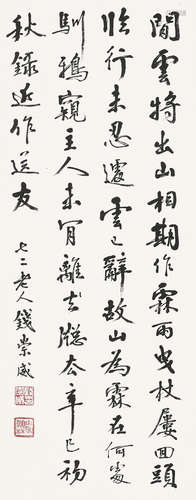 閒雲將出山相期作霖雨曳杖屢回頭
臨行未忍遽雲已辭故山為霖在何處
馴鴉窺主人未肯離牕去辛巳初
秋錄近作送友
七二老人錢崇威